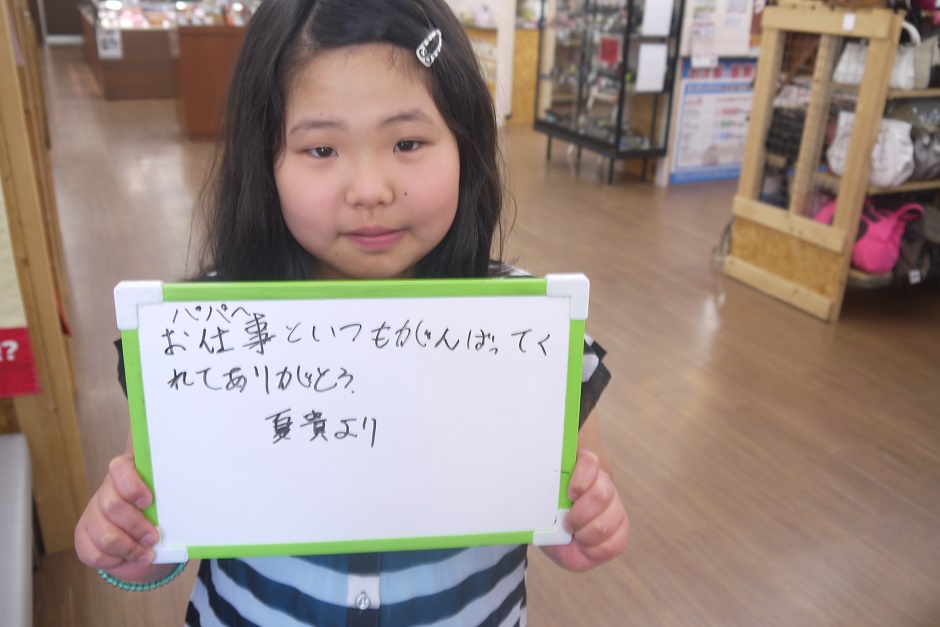 パパへ
お仕事といつもがんばってく
れてありがとう.
夏貴より
!?